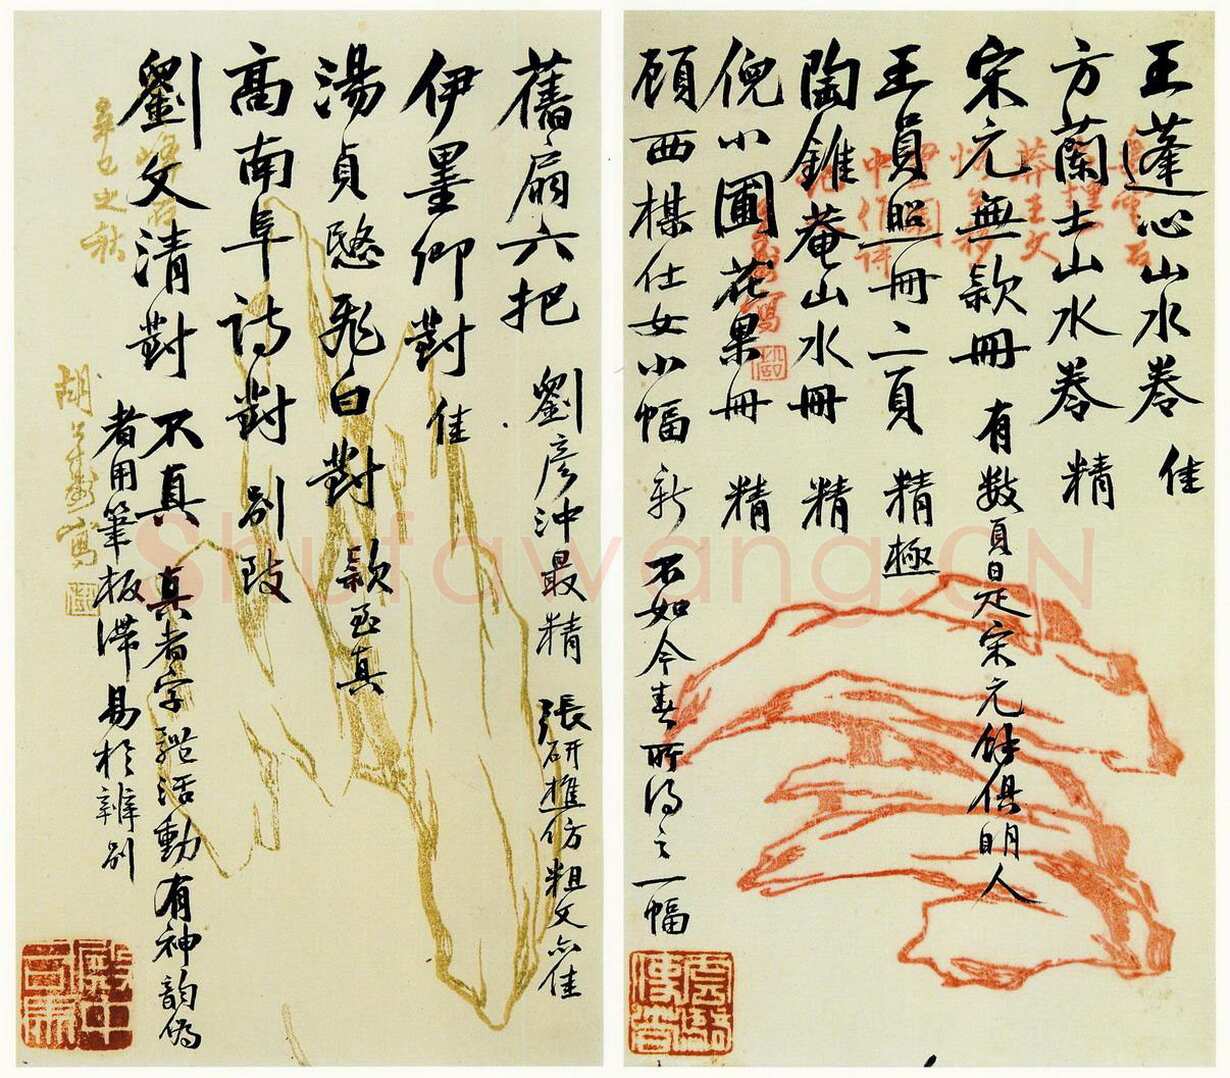 王蓬心山水卷 佳
方蘭士山水卷 精
宋元無款冊 有數頁是宋元餘俱明人
王員照冊二頁 精極
陶錐菴山水冊 精
倪小圃花果冊 精
顧西楳仕女小幅 新 不如今春所得之一幅
舊扇六把 劉彥沖最精 張研樵仿粗文亦佳
伊墨卿對 佳
湯貞愍飛白對 款至真
高南阜詩對 別致
劉文清對 不真 真者字跡活動有神韵偽
者用筆板滯易於辨別
辛巳之秋
Shufawang.CN